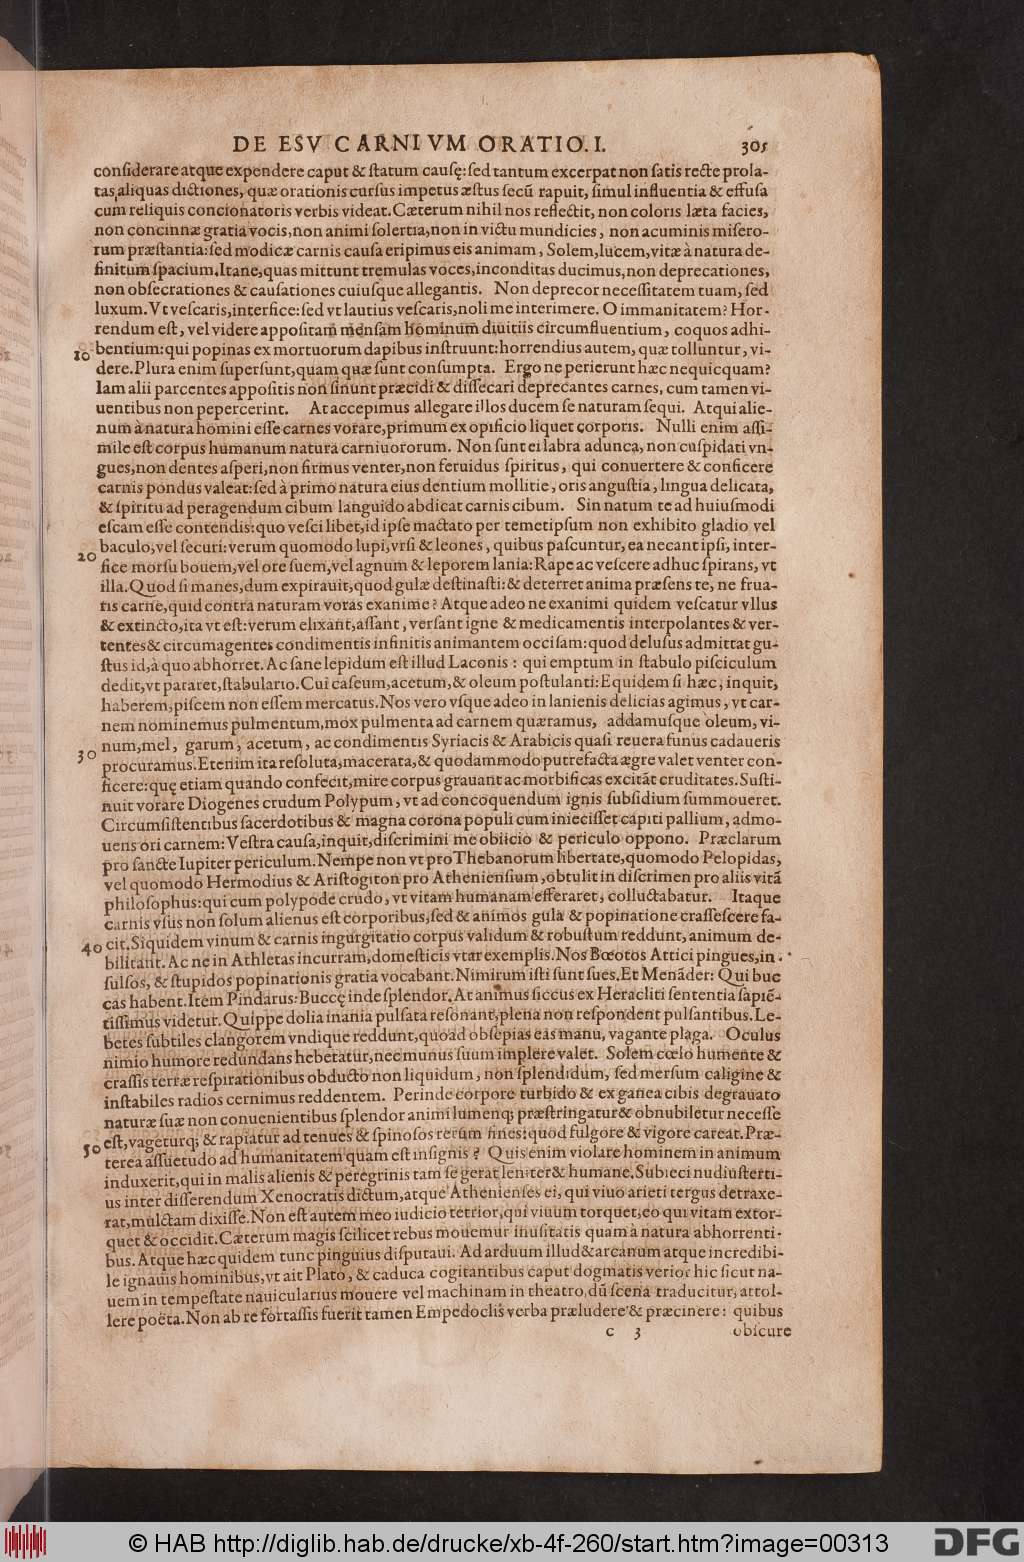 DE ESV CARNIVM ORATIO. I. 305
conſiderare atque expendere caput & ſtatum cauſę: ſed tantum excerpat non ſatis recte prola-
tas aliquas dictiones, quæ orationis curſus impetus æſtus ſecū rapuit, ſimul influentia & effuſa
cum reliquis concionatoris verbis videat. Cæterum nihil nos reflectit, non coloris læta facies,
non concinnæ gratia vocis, non animi ſolertia, non in victu mundicies, non acuminis miſero-
rum præſtantia: ſed modicæ carnis cauſa eripimus eis animam, Solem, lucem, vitæ à natura de-
finitum ſpacium. Itane, quas mittunt tremulas voces, inconditas ducimus, non deprecationes,
non obſecrationes & cauſationes cuiuſque allegantis. Non deprecor neceſſitatem tuam, ſed
luxum. Vt veſcaris, interfice: ſed vt lautius veſcaris, noli me interimere. O immanitatem? Hor-
rendum eſt, vel videre appoſitam menſam hominum diuitiis circumfluentium, coquos adhi-
10 bentium: qui popinas ex mortuorum dapibus inſtruunt: horrendius autem, quæ tolluntur, vi-
dere. Plura enim ſuperſunt, quam quæ ſunt conſumpta. Ergo ne perierunt hæc nequicquam?
Iam alii parcentes appoſitis non ſinunt præcidi & diſſecari deprecantes carnes, cum tamen vi-
uentibus non pepercerint. At accepimus allegare illos ducem ſe naturam ſequi. Atqui alie-
num à natura homini eſſe carnes vorare, primum ex opificio liquet corporis. Nulli enim aſſi-
mile eſt corpus humanum natura carniuororum. Non ſunt ei labra adunca, non cuſpidati vn-
gues, non dentes aſperi, non firmus venter, non feruidus ſpiritus, qui conuertere & conficere
carnis pondus valeat: ſed à primo natura eius dentium mollitie, oris anguſtia, lingua delicata,
& ſpiritu ad peragendum cibum languido abdicat carnis cibum. Sin natum te ad huiuſmodi
eſcam eſſe contendis: quo veſci libet, id ipſe mactato per temetipſum non exhibito gladio vel
baculo, vel ſecuri: verum quomodo lupi, vrſi & leones, quibus paſcuntur, ea necant ipſi, inter-
20 fice morſu bouem, vel ore ſuem, vel agnum & leporem lania: Rape ac veſcere adhuc ſpirans, vt
illa. Quod ſi manes, dum expirauit, quod gulæ deſtinaſti: & deterret anima præſens te, ne frua-
ris carne, quid contra naturam voras exanime? Atque adeo ne exanimi quidem veſcatur vllus
& extincto, ita vt eſt: verum elixant, aſſant, verſant igne & medicamentis interpolantes & ver-
tentes & circumagentes condimentis infinitis animantem occiſam: quod deluſus admittat gu-
ſtus id, à quo abhorret. Ac ſane lepidum eſt illud Laconis: qui emptum in ſtabulo piſciculum
dedit, vt pararet, ſtabulario. Cui caſeum, acetum, & oleum poſtulanti: Equidem ſi hæc, inquit,
haberem, piſcem non eſſem mercatus. Nos vero vſque adeo in lanienis delicias agimus, vt car-
nem nominemus pulmentum, mox pulmenta ad carnem quæramus, addamuſque oleum, vi-
num, mel, garum, acetum, ac condimentis Syriacis & Arabicis quaſi reuera funus cadaueris
30 procuramus. Etenim ita reſoluta, macerata, & quodammodo putrefacta ægre valet venter con-
ficere: quę etiam quando confecit, mire corpus grauant ac morbificas excitāt cruditates. Suſti-
nuit vorare Diogenes crudum Polypum, vt ad concoquendum ignis ſubſidium ſummoueret.
Circumſiſtentibus ſacerdotibus & magna corona populi cum inieciſſet capiti pallium, admo-
uens ori carnem: Veſtra cauſa, inquit, diſcrimini me obiicio & periculo oppono. Præclarum
pro ſancte Iupiter periculum. Nempe non vt pro Thebanorum libertate, quomodo Pelopidas,
vel quomodo Hermodius & Ariſtogiton pro Athenienſium, obtulit in diſcrimen pro aliis vitā
philoſophus: qui cum polypode crudo, vt vitam humanam efferaret, colluctabatur. Itaque
carnis vſus non ſolum alienus eſt corporibus, ſed & animos gula & popinatione craſſeſcere fa-
40 cit. Siquidem vinum & carnis ingurgitatio corpus validum & robuſtum reddunt, animum de-
bilitant. Ac ne in Athletas incurram, domeſticis vtar exemplis. Nos Bœotos Attici pingues, in-
ſulſos, & ſtupidos popinationis gratia vocabant. Nimirum iſti ſunt ſues. Et Menāder: Qui buc
cas habent. Item Pindarus: Buccę inde ſplendor. At animus ſiccus ex Heracliti ſententia ſapiē-
tiſſimus videtur. Quippe dolia inania pulſata reſonant, plena non reſpondent pulſantibus. Le-
betes ſubtiles clangorem vndique reddunt, quoad obſepias eas manu, vagante plaga. Oculus
nimio humore redundans hebetatur, nec munus ſuum implere valet. Solem cœlo humente &
craſſis terræ reſpirationibus obducto non liquidum, non ſplendidum, ſed merſum caligine &
inſtabiles radios cernimus reddentem. Perinde corpore turbido & ex ganea cibis degrauato
naturæ ſuæ non conuenientibus ſplendor animi lumenq; præſtringatur & obnubiletur neceſſe
50 eſt, vageturq; & rapiatur ad tenues & ſpinoſos rerum fines: quod fulgore & vigore careat. Præ-
terea aſſuetudo ad humanitatem quam eſt inſignis? Quis enim violare hominem in animum
induxerit, qui in malis alienis & peregrinis tam ſe gerat leniter & humane. Subieci nudiuſterti-
us inter diſſerendum Xenocratis dictum, atque Athenienſes ei, qui viuo arieti tergus detraxe-
rat, mulctam dixiſſe. Non eſt autem meo iudicio tetrior, qui viuum torquet, eo qui vitam extor-
quet & occidit. Cæterum magis ſcilicet rebus mouemur inuſitatis quam à natura abhorrenti-
bus. Atque hæc quidem tunc pinguius diſputaui. Ad arduum illud & arcanum atque incredibi-
le ignauis hominibus, vt ait Plato, & caduca cogitantibus caput dogmatis verior hic ſicut na-
uem in tempeſtate nauicularius mouere vel machinam in theatro, dū ſcena traducitur, attol-
lere poëta. Non ab re fortaſſis fuerit tamen Empedoclis verba præludere & præcinere: quibus
c 3 obſcure
© HAB http://diglib.hab.de/drucke/xb-4f-260/start.htm?image=00313
DFG